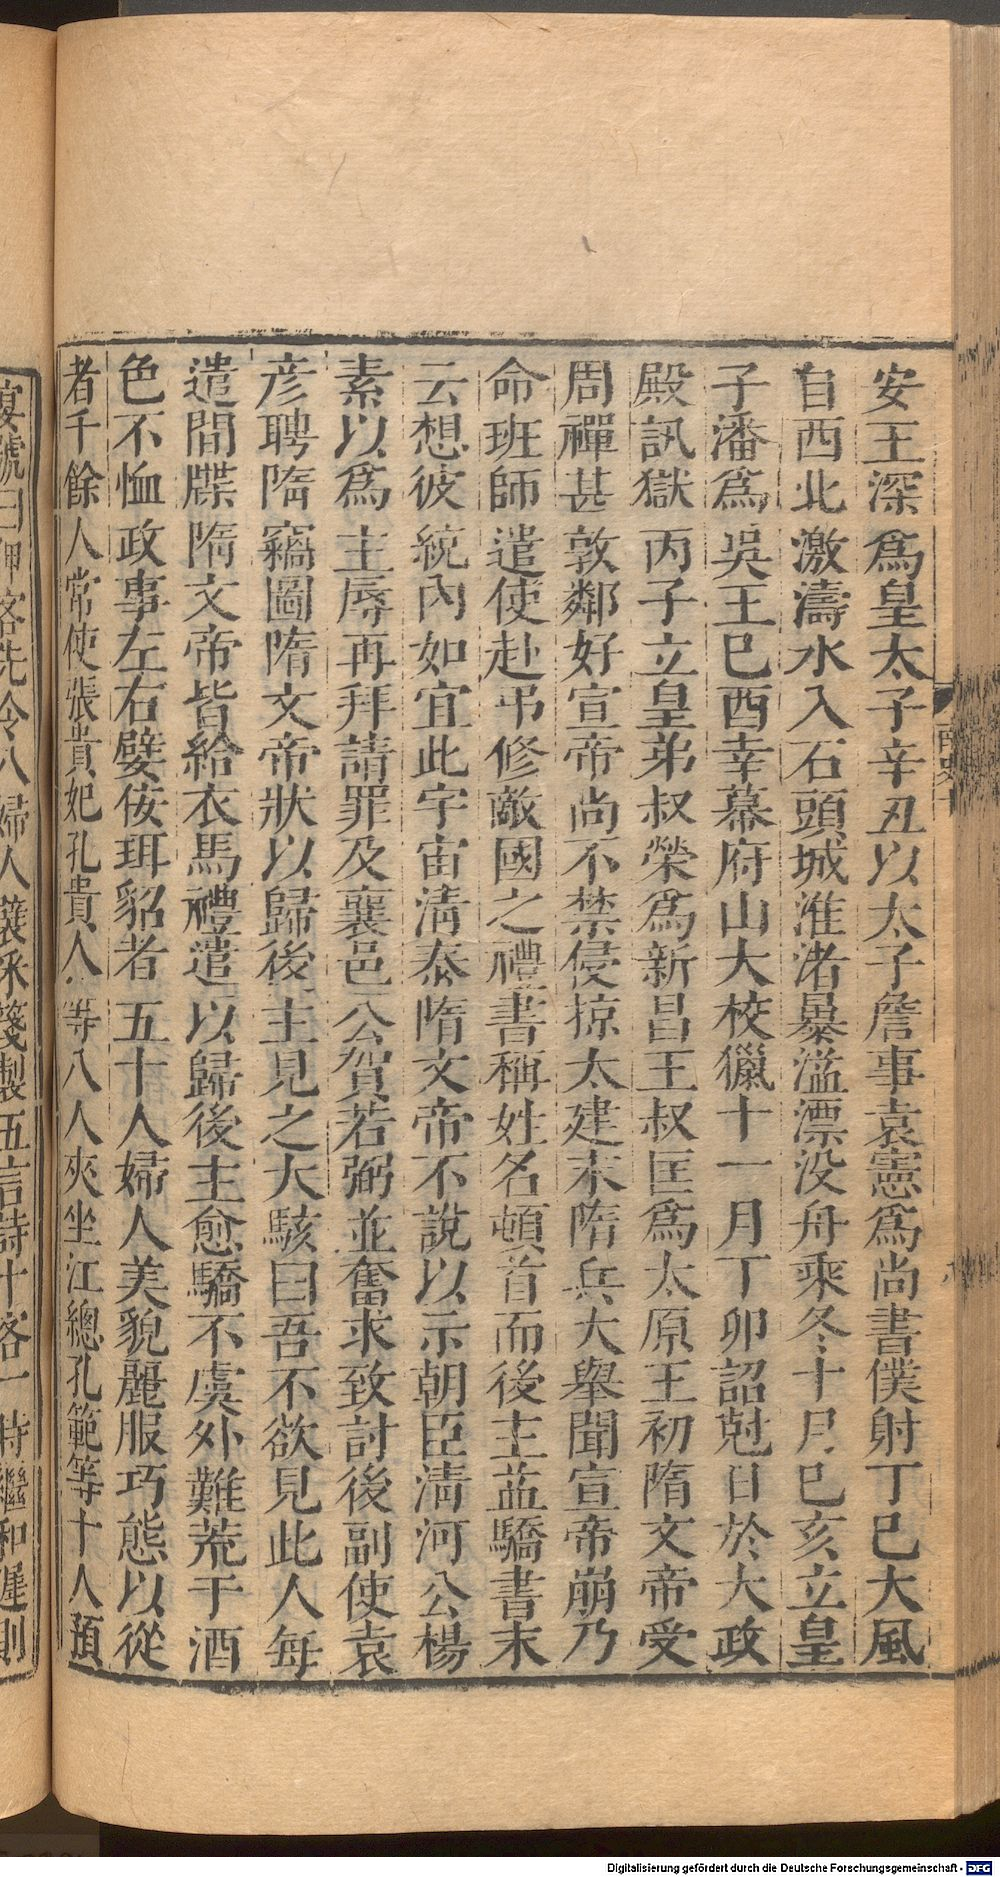 安王深爲皇太子辛丑以太子詹事袁憲爲尚書僕射丁巳大風
自西北激濤水入石頭城淮渚暴溢漂没舟乘冬十月巳亥立皇
子潘爲吳王巳酉幸幕府山大校獵十一月丁卯詔尅日於大政
殿訊獄丙子立皇弟叔榮爲新昌王叔匡爲太原王初隋文帝受
周禪甚敦鄰好宣帝尚不禁侵掠太建末隋兵大舉聞宣帝崩乃
命班師遣使赴弔修敵國之禮書稱姓名頓首而後主益驕書末
云想彼統內如宜此宇宙淸泰隋文帝不說以示朝臣淸河公楊
素以爲主辱再拜請罪及襄邑公賀若弼並奮求致討後副使袁
彦聘隋竊圖隋文帝狀以歸後主見之大駭曰吾不欲見此人每
遣間牒隋文帝皆給衣馬禮遣以歸後主愈驕不虞外難荒于酒
色不恤政事左右嬖佞珥貂者五十人婦人美貌麗服巧態以從
者千餘人常使張貴妃孔貴人等八人夾坐江總孔範等十人預
宴號曰狎客先令八婦人襞采箋製五言詩十客一時繼和遲則
Digitalisierung gefördert durch die Deutsche Forschungsgemeinschaft - DFG